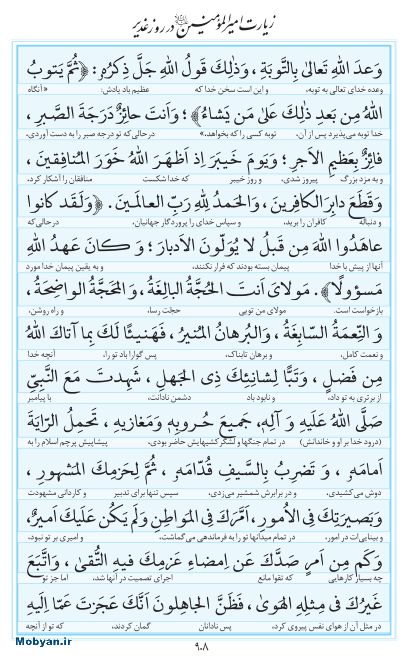 زیارت امیرالمؤمنین علیه السلام در روز غدیر
وَعدَ اللهِ تَعالىٰ بِالتَّوبَةِ ، وَذٰلِكَ قَولُ اللهِ جَلَّ ذِكرُهُ : ﴿ثُمَّ يَتوبُ
وعده خدای تعالی به توبه، و این است سخن خدا که عظیم باد یادش: « آنگاه
اللهُ مِن بَعدِ ذٰلِكَ عَلىٰ مَن يَشاءُ﴾ ؛ وَاَنتَ حائِزٌ دَرَجَةَ الصَّبرِ ،
خدا توبه می‌پذیرد پس از آن، توبه کسی را که بخواهد.» درحالی‌که تو درجه صبر را به دست آوردی،
فائِزٌ بِعَظيمِ الاَجرِ ؛ وَيَومَ خَيبَرَ اِذ اَظهَرَ اللهُ خَوَرَ المُنافِقينَ ،
و به مزد بزرگ پیروز شدی، و روز خیبر که خدا شکست منافقان را آشکار کرد،
وَقَطَعَ دابِرَ الكافِرينَ ، وَالحَمدُ لِلّٰهِ رَبِّ العالَمينَ . ﴿وَلَقَد كانوا
و دنباله کافران را برید، و سپاس خدای را پروردگار جهانیان، درحالی‌که
عاهَدُوا اللهَ مِن قَبلُ لا يُوَلّونَ الاَدبارَ ؛ وَ كانَ عَهدُ اللهِ
آنها از پیش با خدا پیمان بسته بودند که فرار نکنند، و به یقین پیمان خدا مورد
مَسؤولًا﴾ . مَولايَ اَنتَ الحُجَّةُ البالِغَةُ ، وَالمَحَجَّةُ الواضِحَةُ ،
بازخواست است. مولای من تویی حجت رسا، و راه روشن،
وَ النِّعمَةُ السّابِغَةُ ، وَالبُرهانُ المُنيرُ ، فَهَنيئًا لَكَ بِما آتاكَ اللهُ
و نعمت کامل، و برهان تابناک، پس گوارا باد تو را، آنچه خدا
مِن فَضلٍ ، وَتَبًّا لِشانِئِكَ ذِى الجَهلِ ، شَهِدتَ مَعَ النَّبِيِّ
از برتری به تو داد، و نابود باد دشمن نادانت، با پیامبر
صَلَّى اللهُ عَلَيهِ وَ آلِهٖ ، جَميعَ حُروبِهٖ وَمَغازيهِ ، تَحمِلُ الرّايَةَ
(درود خدا بر او و خاندانش) در تمام جنگها و لشگرکشیهایش حاضر بودی، پیشاپیش پرچم اسلام را به
اَمامَهٗ ، وَ تَضرِبُ بِالسَّيفِ قُدّامَهٗ ، ثُمَّ لِحَزمِكَ المَشهورِ ،
دوش می‌کشیدی، و در برابرش شمشیر می‌زدی، سپس تنها برای تدبیر و کاردانی مشهودت
وَبَصيرَتِكَ فِى الاُمورِ ، اَمَّرَكَ فِى المَواطِنِ وَلَم يَكُن عَلَيكَ اَميرٌ ،
و بینایی‌ات در امور، در تمام میدانها تو را به فرماندهی می‌گماشت، و امیری بر تو نبود،
وَكَم مِن اَمرٍ صَدَّكَ عَن اِمضاءِ عَزمِكَ فيهِ التُّقىٰ ، وَاتَّبَعَ
چه بسیار کارهایی که تقوا مانع اجرای تصمیمت در آنها شد، اما جز تو
غَيرُكَ فى مِثلِهِ الهَوىٰ ، فَظَنَّ الجاهِلونَ اَنَّكَ عَجَزتَ عَمّا اِلَيهِ
در مثل آن از هوای نفس پیروی کرد، پس نادانان گمان کردند، که تو از آنچه
۹۰۸
Mobyan.ir